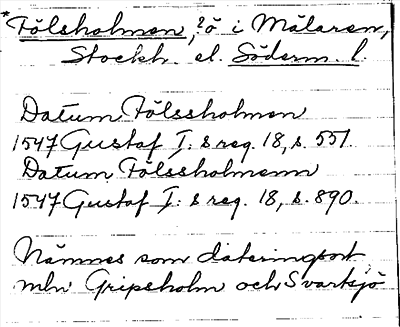 *Fölsholmen, ?ö i Mälaren,
Stockh. el. Söderm. l.
Datum Fölssholmen
1547 Gustaf I: s reg. 18, s. 551.
Datum Fölssholmenn
1547 Gustaf I: s reg. 18, s. 890.
Nämnes som dateringsort
mln Gripsholm och Svartsjö